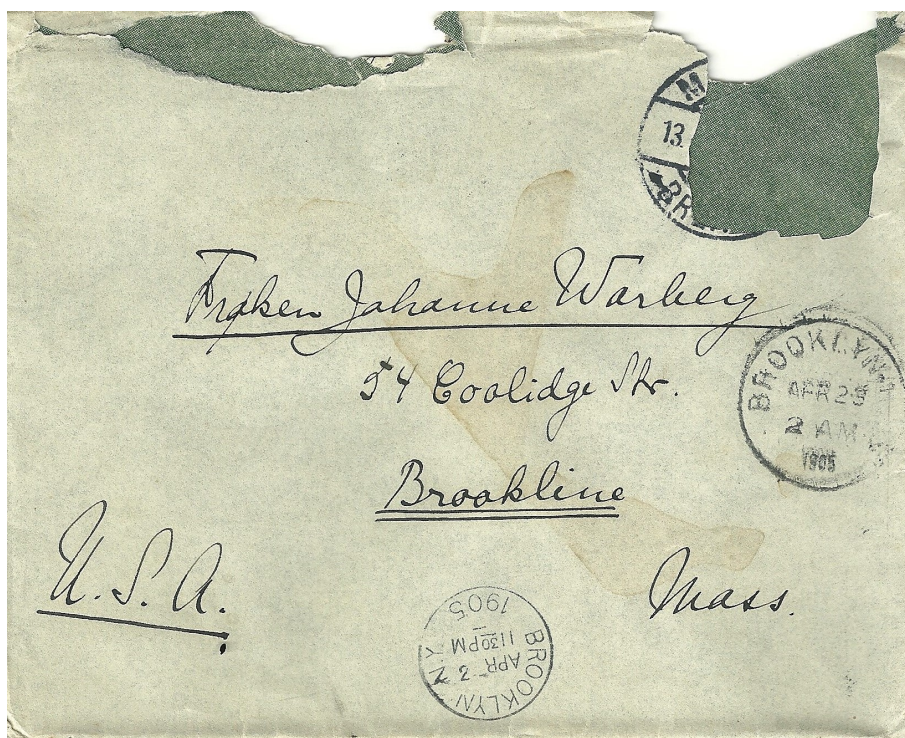 13.
Frøken Johanne Warberg
54 Coolidge Str.
Brookline
Mass.
U. S. A.
BROOKLYN
APR 25
2 AM
1905
BROOKLYN N.Y.
APR 2
1130 PM
1905